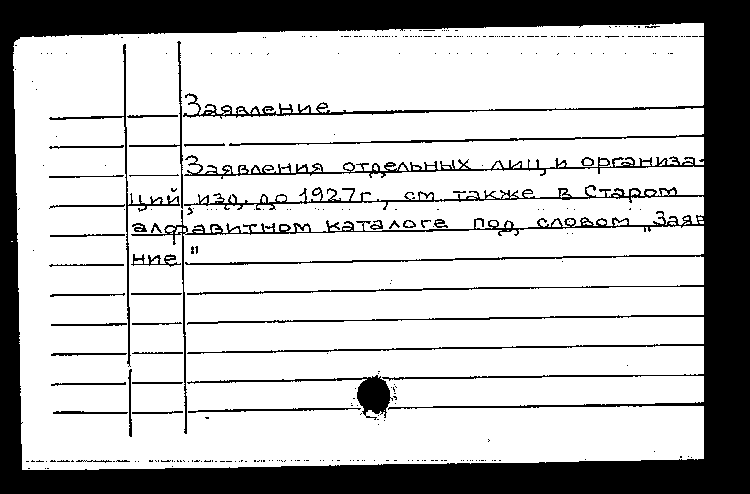 Заявление.
Заявления отдельных лиц и организа-
ций, изд. до 1927г., см также в Старом
алфавитном каталоге под словом „Заяв
ние"